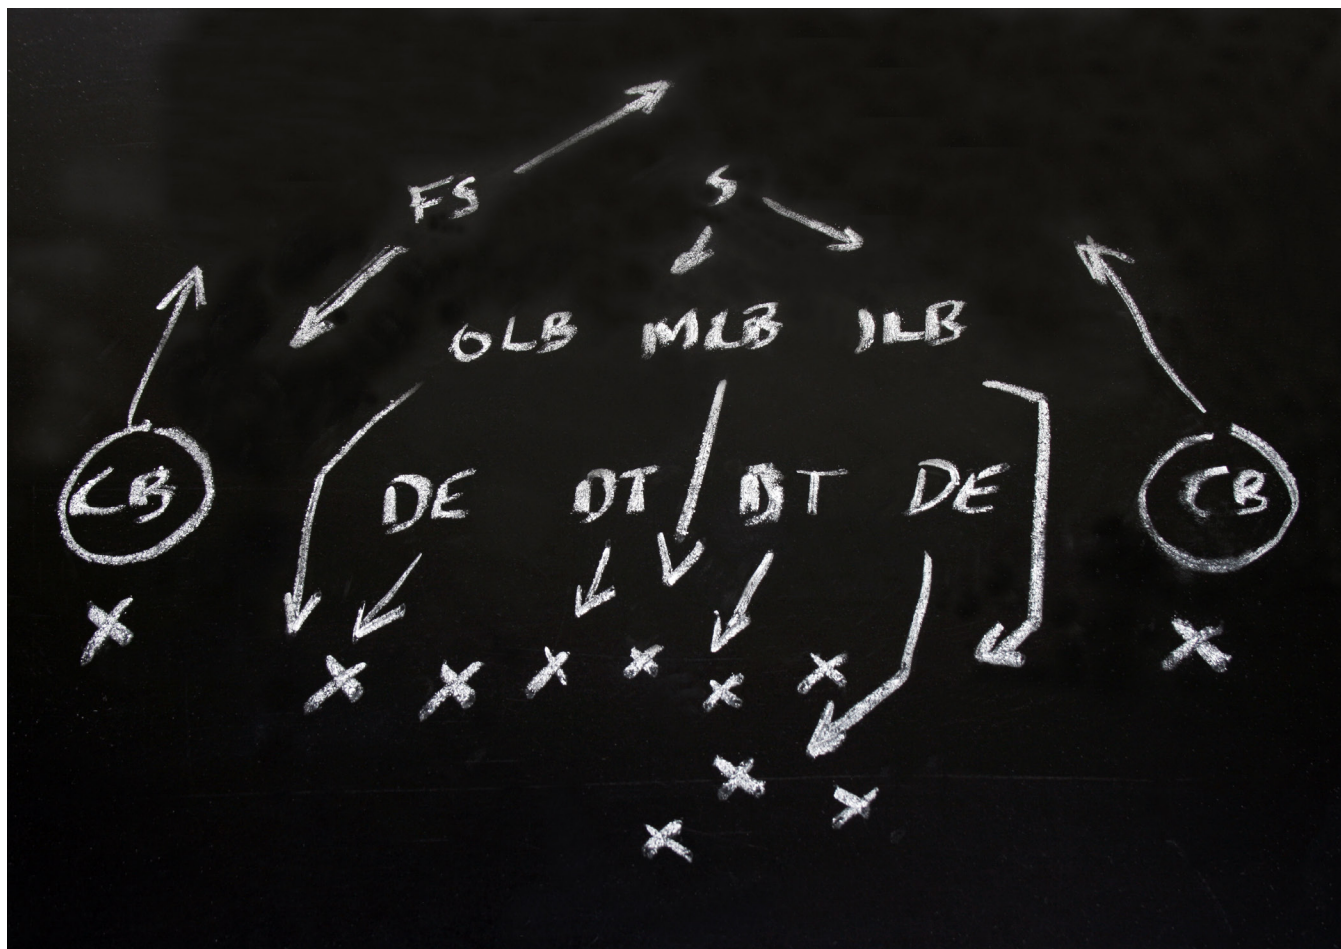 FS S
OLB MLB ILB
CB DE DT DT DE CB
X X
X X X X X X
X X
X